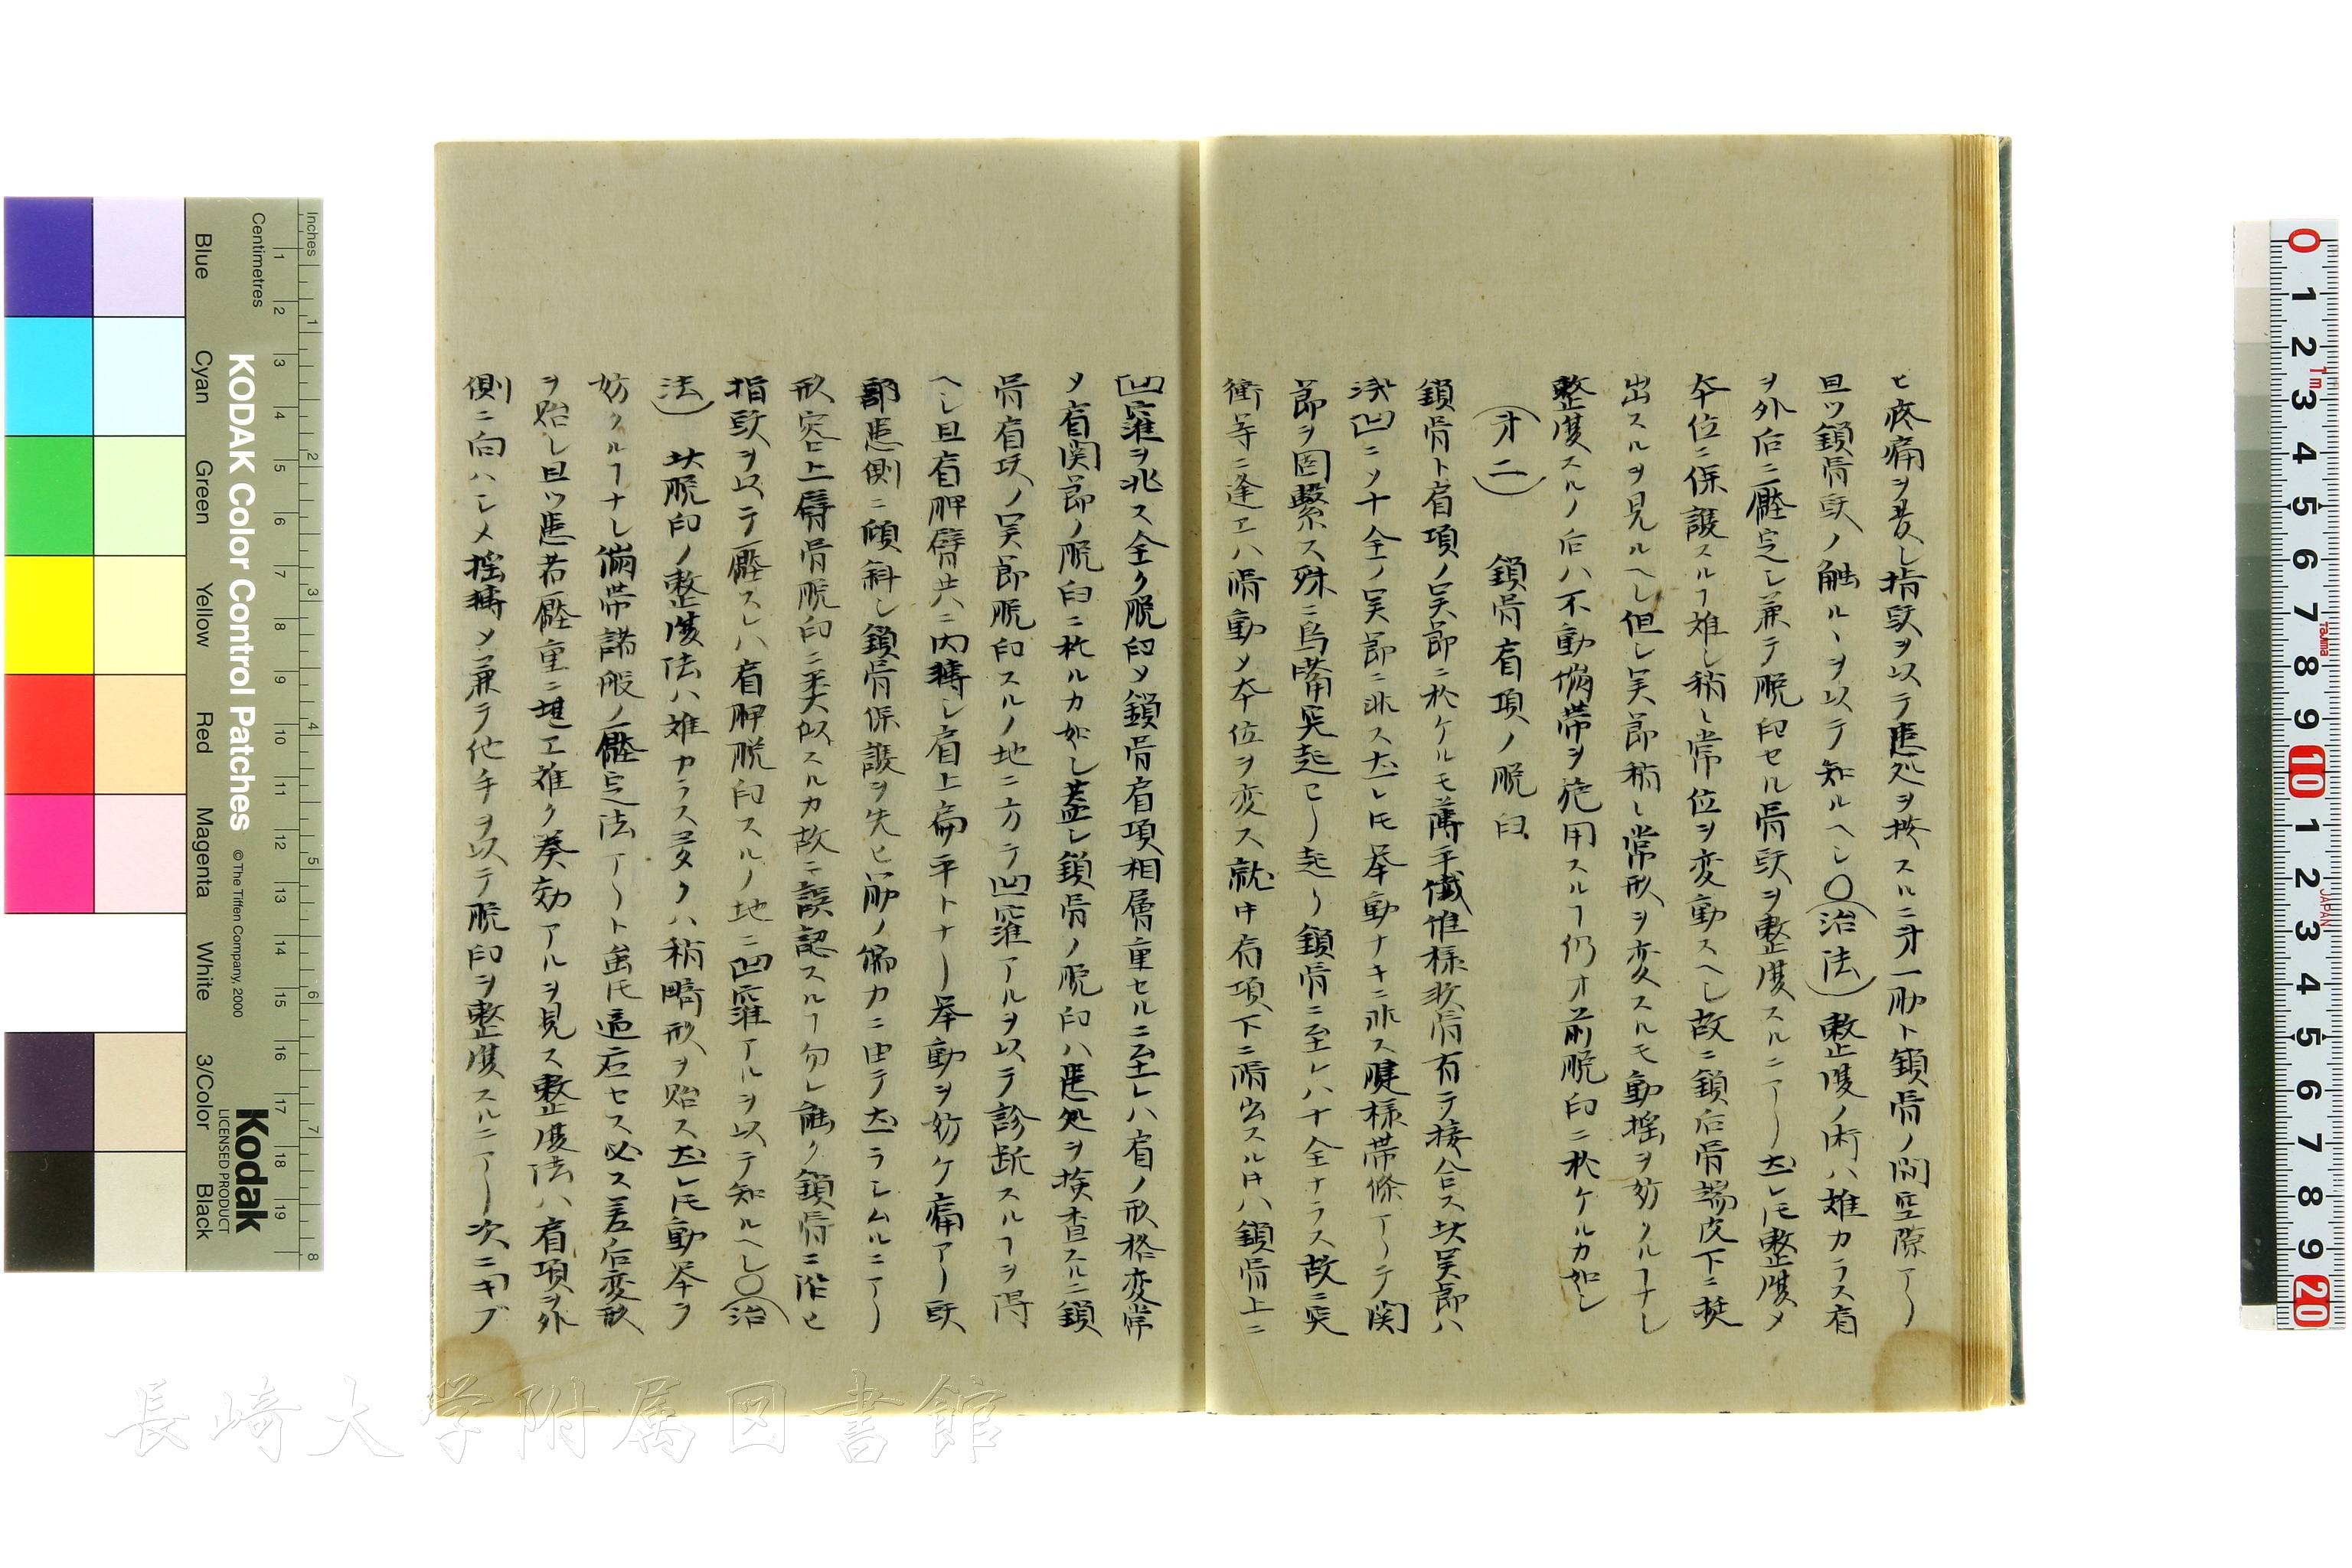 ヒ疼痛ヲ発シ指頭ヲ以テ患処ヲ按スルニ才一肋ト鎖骨ノ間空隙アリ
且ツ鎖骨頭ノ触ルヽヲ以テ知ルヘシ○(治法)整復ノ術ハ難カラス肩
ヲ外后ニ壓定シ兼テ脱臼セル骨頭ヲ整復スルニアリ然レ𪜈整復メ
本位ニ保護スルヿ難シ稍々常位ヲ変動スヘシ故ニ鎖后骨端皮下ニ挺
出スルヲ見ルヘシ但シ関節稍々常形ヲ変スルモ動揺ヲ妨クルヿナシ
整復スルノ后ハ不動繃帯ヲ施用スルヿ仍オ前脱臼ニ於ケルカ如シ
(才二) 鎖骨肩項ノ脱臼
鎖骨ト肩項ノ関節ニ於ケルモ薄キ繊維様軟骨有テ接合ス此関節ハ
浅凹ニメ十全ノ関節ニ非ス然レ𪜈挙動ナキニ非ス腱様帯條アリテ関
節ヲ固繋ス殊ニ烏嘴突起ヨリ起リ鎖骨ニ至レハ十全ナラス故ニ突
衝等ニ逢エハ滑動メ本位ヲ変ス就中肩項下ニ滑出スル時ハ鎖骨上ニ
凹窪ヲ兆ス全ク脱臼メ鎖骨肩項相層重セルニ至レハ肩ノ形格変常
メ肩関節ノ脱臼ニ於ルカ如シ蓋シ鎖骨ノ脱臼ハ患処ヲ検査スルニ鎖
骨肩項ノ関節脱臼スルノ地ニ方テ凹窪アルヲ以テ診断スルヿヲ得
ヘシ且肩胛臂共ニ内轉シ肩上扁平トナリ挙動ヲ妨ケ痛アリ頭
部患側ニ傾斜シ鎖骨保護ヲ失ヒ筋ノ偏力ニ由テ然ラシムルニアリ
形容上臂骨脱臼ニ類似スルカ故ニ誤認スルヿ勿レ能ク鎖骨ニ沿ヒ
指頭ヲ以テ壓スレハ肩胛脱臼スルノ地ニ凹窪アルヲ以テ知ルヘシ○(治
法) 此脱臼ノ整復法ハ難カラス多クハ稍畸形ヲ貽ス然レ𪜈動挙ヲ
妨クルヿナシ繃帯諸般ノ壓定法アリト虽𪜈適應セス必ス差后変形
ヲ貽シ且ツ患者壓重ニ堪エ難ク奏効アルヲ見ス整復法ハ肩項ヲ外
側ニ向ハシメ揺轉メ兼テ他手ヲ以テ脱臼ヲ整復スルニアリ次ニキブ
Inches
Centimetres
KODAK Color Control Patches
© The Tiffen Company, 2000
Kodak
LICENSED PRODUCT
Blue
Cyan
Green
Yellow
Red
Magenta
White
3/Color
Black
長崎大学附属図書館